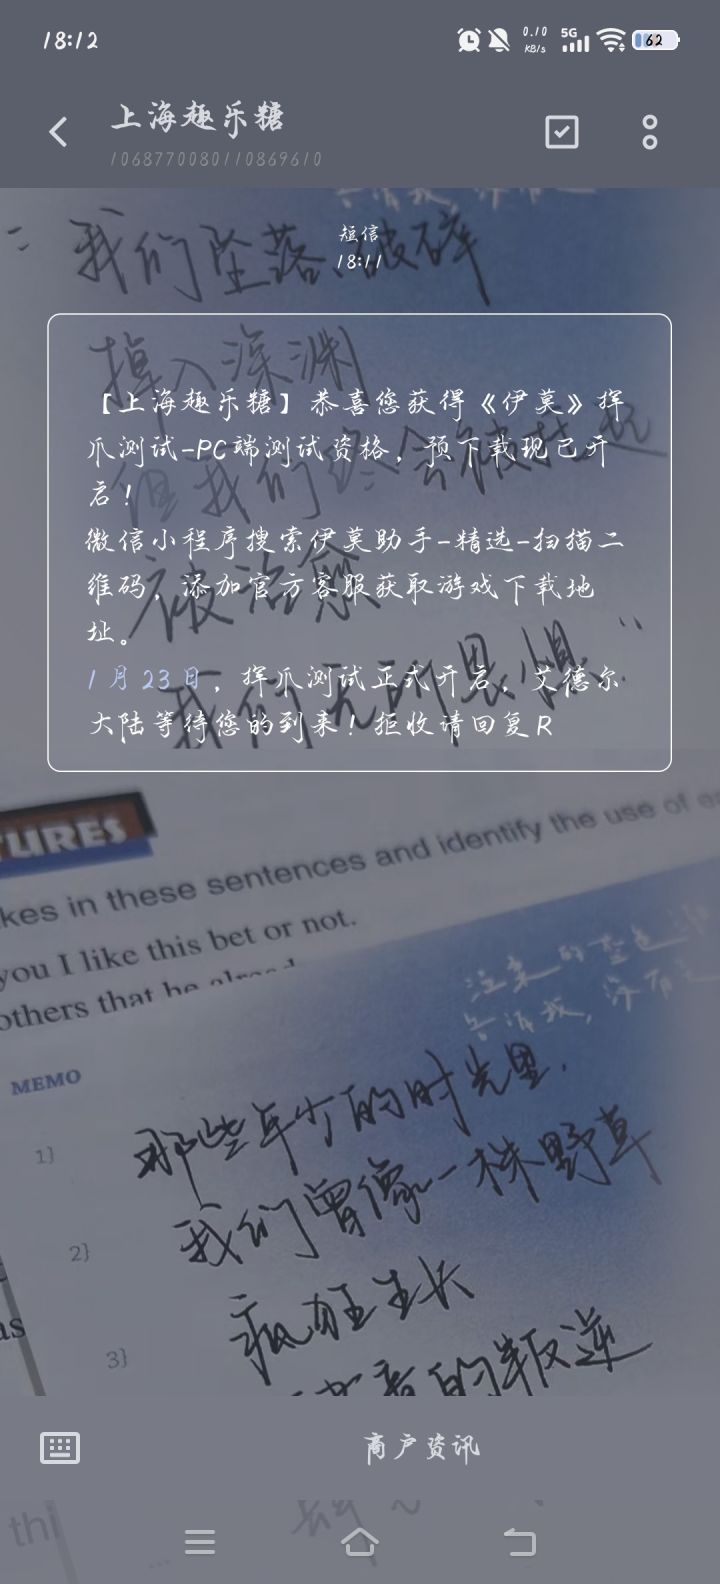 18:12
0.10
KB/s
5G
62
上海趣乐糖
1068770080110869610
短信
18:11
我们坠落、破碎
掉入深渊
【上海趣乐糖】恭喜您获得《伊莫》挥
爪测试-PC端测试资格，预下载现已开
启！
但我们终会被托起
微信小程序搜索伊莫助手-精选-扫描二
维码，添加官方客服获取游戏下载地
址。
被治愈
1月23日，挥爪测试正式开启，艾德尔
大陆等待您的到来！拒收请回复R
TURES
kes in these sentences and identify the use of
you I like this bet or not.
others that he alread
MEMO
1}
那些年少的时光里.
2}
我们曾像一株野草
疯狂生长
3}
的叛逆
商户资讯
thi